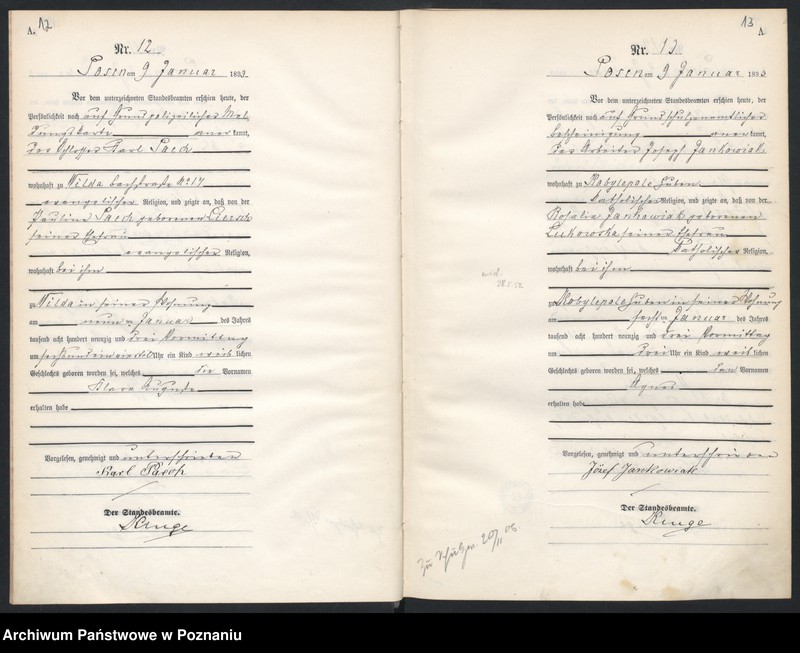 A. 12
Nr. 12
Posen am 9 Januar 1893.
Vor dem unterzeichneten Standesbeamten erschien heute, der
Persönlichkeit nach auf Grund polizeilicher Mel
dungskarte kannt,
der Schlosser Karl Paech
wohnhaft zu Wilda Bachstraße No 17
evangelischer Religion, und zeigte an, daß von der
Pauline Paech geborenen
seiner Ehefrau
evangelischer Religion,
wohnhaft bei ihm
zu Wilda in seiner Wohnung
am neunten Januar des Jahres
tausend acht hundert neunzig und drei Vormittag
um sechs und ein viertel Uhr ein Kind weib lichen
Geschlechts geboren worden sei, welches die Vornamen
Klara Auguste
erhalten habe
Vorgelesen, genehmigt und unterschrieben
Karl Paech
Der Standesbeamte.
13 A
Nr. 13
Posen am 9 Januar 1893
Vor dem unterzeichneten Standesbeamten erschien heute, der
Persönlichkeit nach auf Grund schulzenamtlicher
Bescheinigung kannt,
der Arbeiter Joseph Jankowiak
wohnhaft zu Kobylepole Huben
katholischer Religion, und zeigte an, daß von der
Rosalia Jankowiak geborenen
Lukowska seiner Ehefrau
katholischer Religion,
wohnhaft bei ihm
zu Kobylepole Huben in seiner Wohnung
am sechsten Januar des Jahres
tausend acht hundert neunzig und drei Vormittag
um drei Uhr ein Kind weib lichen
Geschlechts geboren worden sei, welches den Vornamen
Agnes
erhalten habe
Vorgelesen, genehmigt und unterschrieben
Józef Jankowiak
Der Standesbeamte.
Archiwum Państwowe w Poznaniu